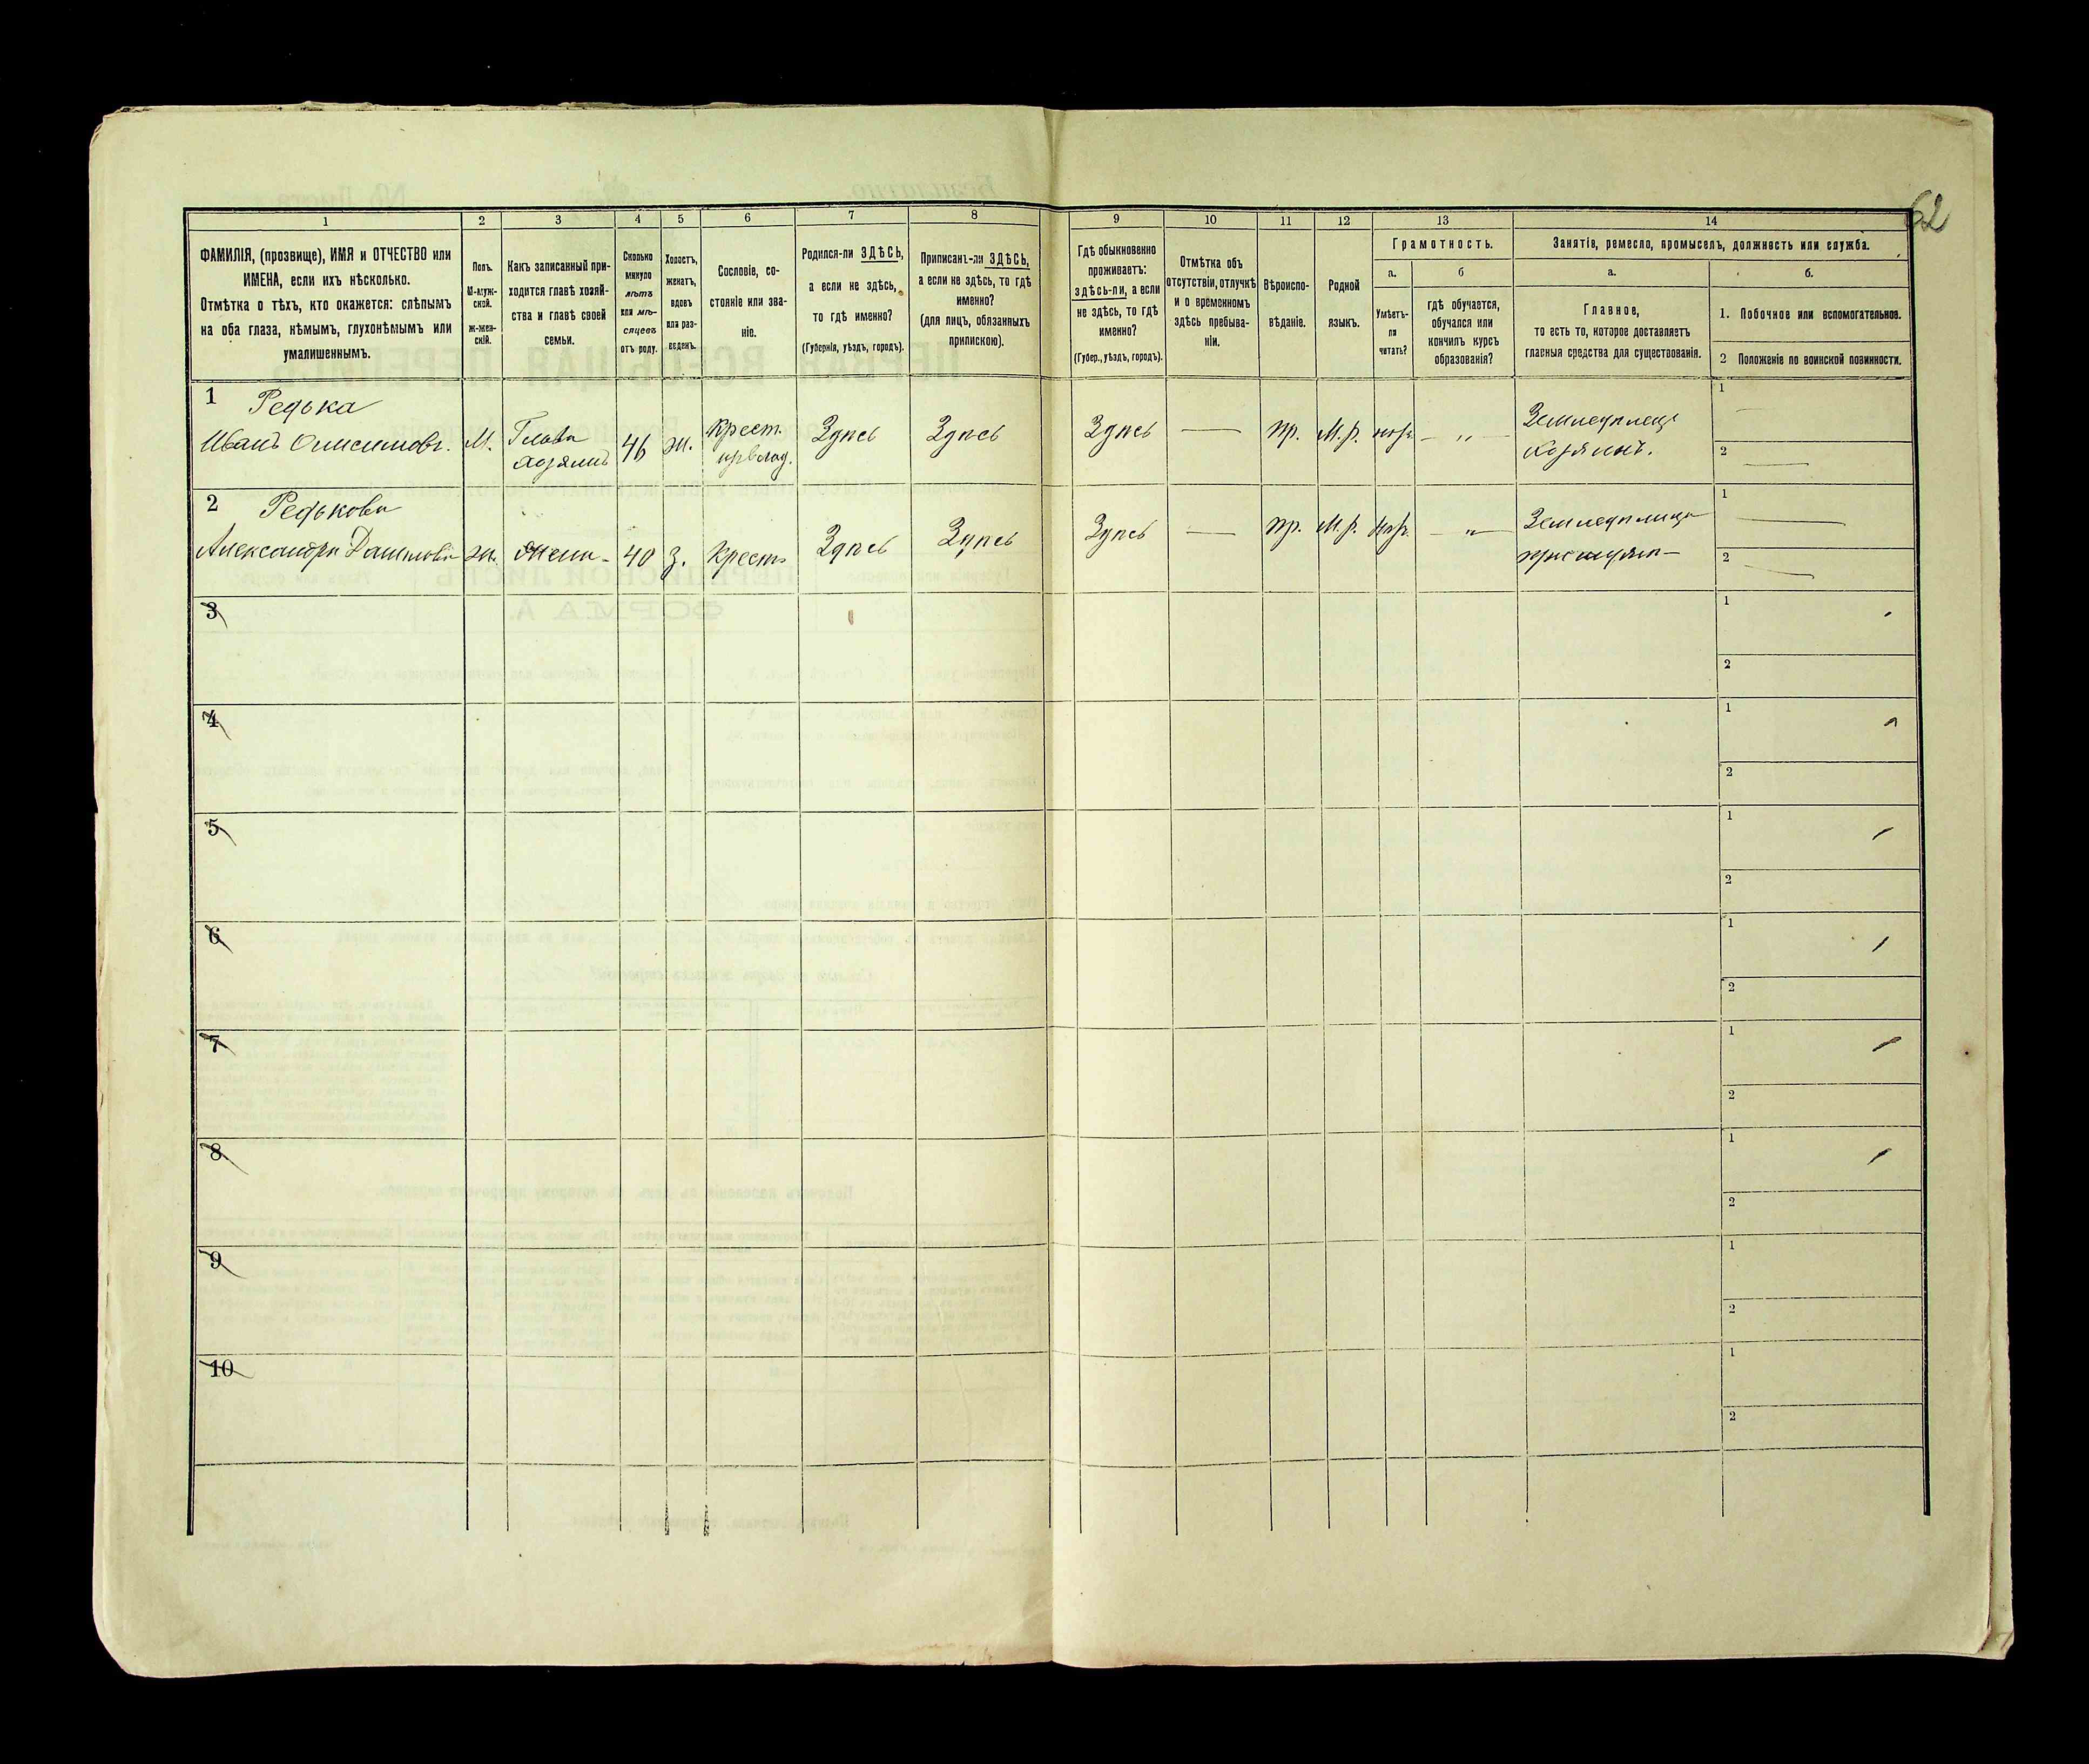 62
1
2
3
4
5
6
7
8
9
10
11
12
13
14
ФАМИЛІЯ, (прозвище), ИМЯ и ОТЧЕСТВО или
ИМЕНА, если ихъ нѣсколько.
Отмѣтка о тѣхъ, кто окажется: слѣпымъ
на оба глаза, нѣмымъ, глухонѣмымъ или
умалишеннымъ.
Полъ.
М-муж-
ской.
ж-жен-
скій.
Какъ записанный при-
ходится главѣ хозяй-
ства и главѣ своей
семьи.
Сколько
минуло
лѣтъ
или мѣ-
сяцевъ
отъ роду.
Холостъ,
женатъ,
вдовъ
или раз-
веденъ.
Сословіе, со-
стояніе или зва-
ніе.
Родился-ли ЗДѢСЬ,
а если не здѣсь,
то гдѣ именно?
(Губернія, уѣздъ, городъ).
Приписанъ-ли ЗДѢСЬ,
а если не здѣсь, то гдѣ
именно?
(для лицъ, обязанныхъ
припискою).
Гдѣ обыкновенно
проживаетъ:
здѣсь-ли, а если
не здѣсь, то гдѣ
именно?
(Губер., уѣздъ, городъ).
Отмѣтка объ
отсутствіи, отлучкѣ
и о временномъ
здѣсь пребыва-
ніи.
Вѣроиспо-
вѣданіе.
Родной
языкъ.
Грамотность.
а.
Умѣетъ-
ли
читать?
б
гдѣ обучается,
обучался или
кончилъ курсъ
образованія?
Занятіе, ремесло, промыселъ, должность или служба.
а.
Главное,
то есть то, которое доставляетъ
главныя средства для существованія.
б.
1. Побочное или вспомогательное.
2 Положеніе по воинской повинности.
1 Редька
Иванъ Онисимовъ.
М.
Глава
хозяинъ
46
ж.
Крест.
Здѣсь
Здѣсь
Здѣсь
—
пр.
М.р.
— „ —
Земледѣлецъ
хозяинъ.
1 —
2 —
2 Редькова
Александра Данилова
ж.
жена
40
з.
Крест.
Здѣсь
Здѣсь
Здѣсь
—
пр.
М.р.
— „
1 —
2 —
3
1
2
4
1
2
5
1
2
6
1
2
7
1
2
8
1
2
9
1
2
10
1
2